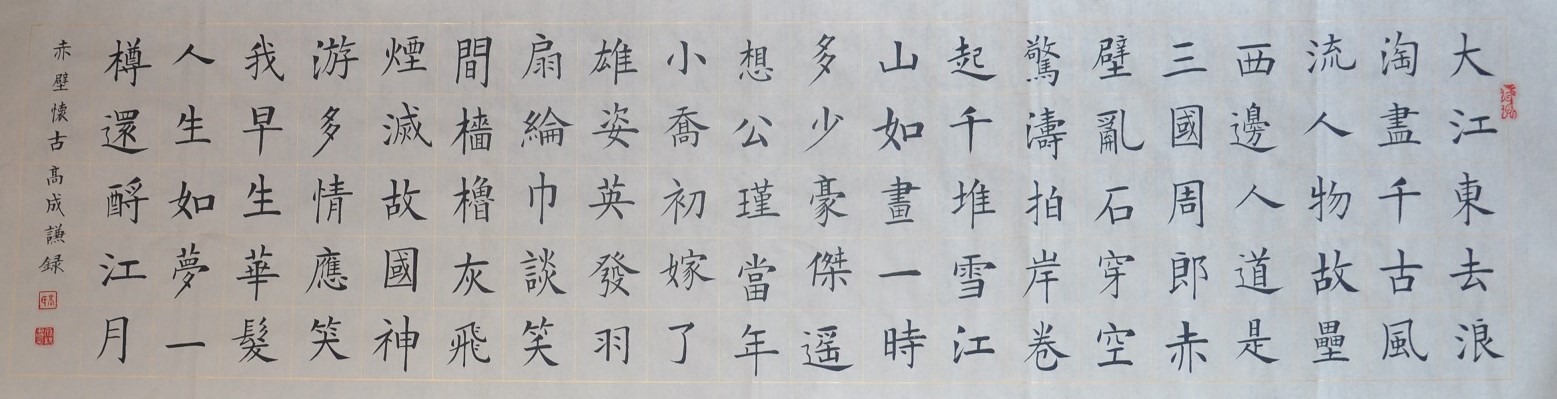 大江東去浪
淘盡千古風
流人物故壘
西邊人道是
三國周郎赤
壁亂石穿空
驚濤拍岸卷
起千堆雪江
山如畫一時
多少豪傑遥
想公瑾當年
小喬初嫁了
雄姿英發羽
扇綸巾談笑
間檣櫓灰飛
煙滅故國神
游多情應笑
我早生華髮
人生如夢一
樽還酹江月
赤壁懷古髙成謙録